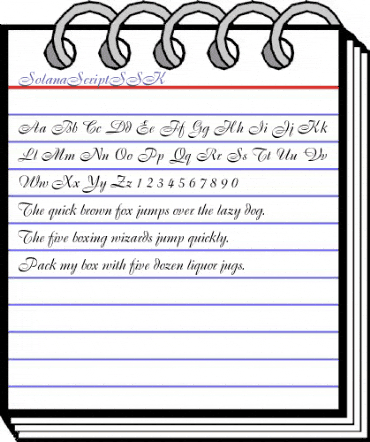 SolanaScriptSSK
Aa Bb Cc Dd Ee Ff Gg Hh Ii Jj Kk
Ll Mm Nn Oo Pp Qq Rr Ss Tt Uu Vv
Ww Xx Yy Zz 1 2 3 4 5 6 7 8 9 0
The quick brown fox jumps over the lazy dog.
The five boxing wizards jump quickly.
Pack my box with five dozen liquor jugs.